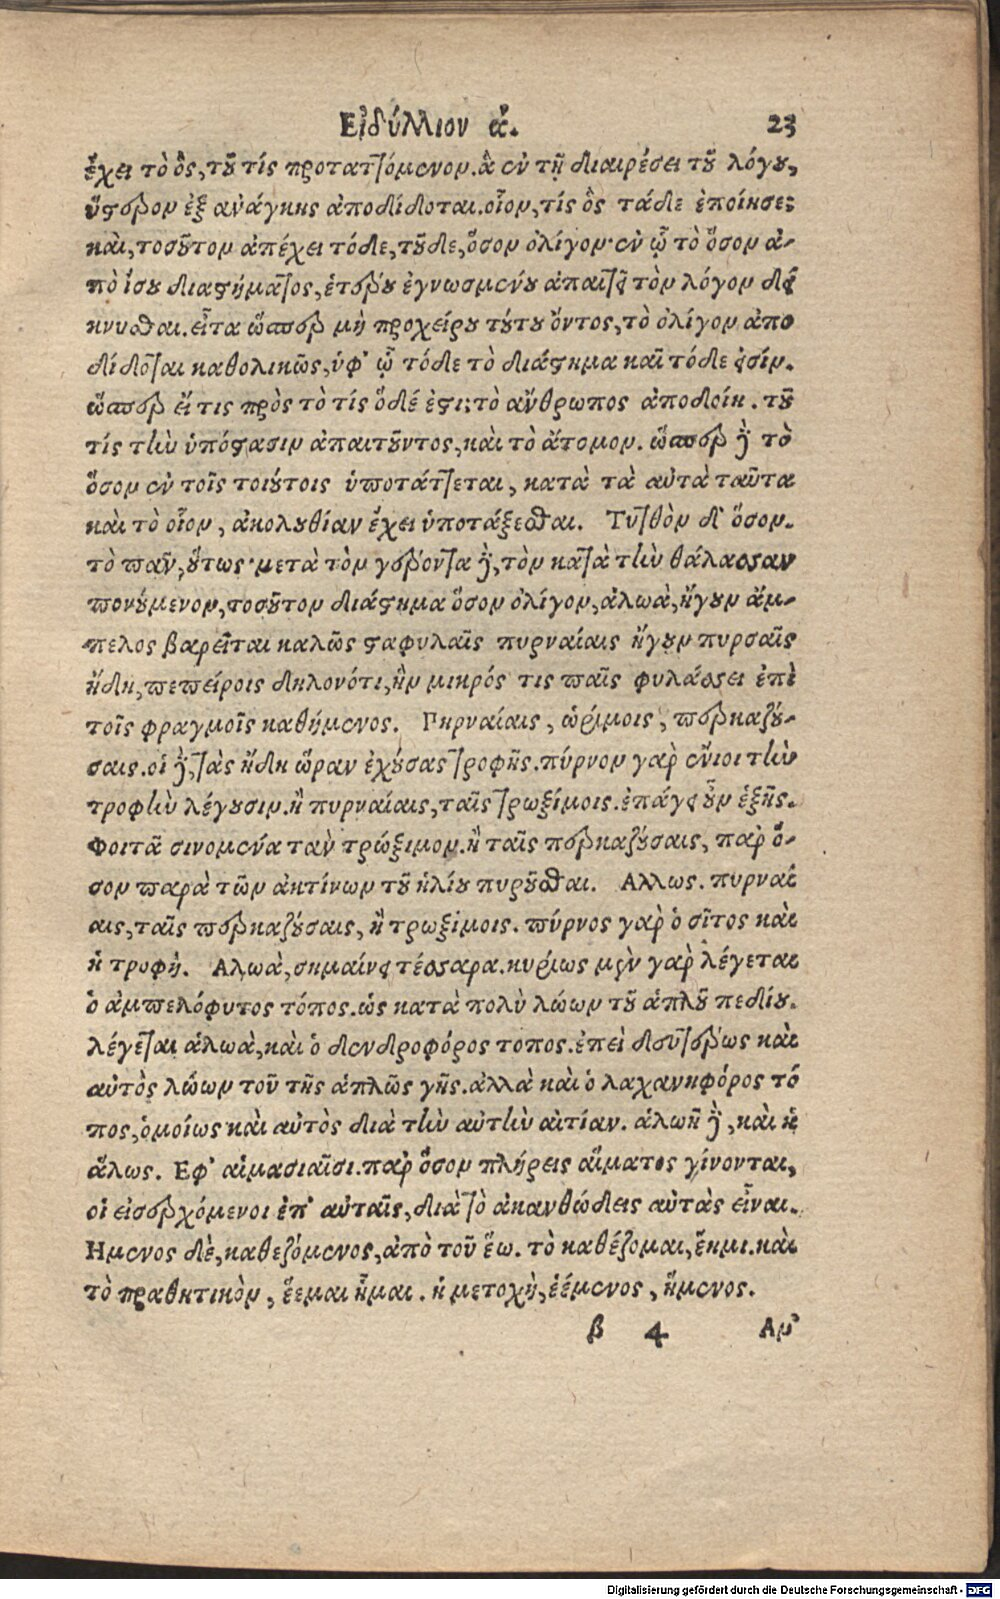 Εἰδύλλιον ά. 23
ἔχει τὸ ὃς, τοῦ τίς προταττόμενον. ἃ ἐν τῇ διαιρέσει τοῦ λόγου,
ὕστερον ἐξ ἀνάγκης ἀποδίδοται. οἷον, τίς ὃς τάδε ἐποίησε;
καὶ, τοσοῦτον ἀπέχει τόδε, τοῦδε, ὅσον ὀλίγον· ἐν ᾧ τὸ ὅσον ἀ-
πὸ ἴσου διαστήματος, ἑτέρου ἐγνωσμένου ἀπαιτεῖ τὸν λόγον δεί
κνυσθαι. εἶτα ὥσπερ μὴ προχείρου τούτου ὄντος, τὸ ὀλίγον ἀπο
δίδοται καθολικῶς, ὑφ' ᾧ τόδε τὸ διάστημα καὶ τόδε ἐσίν.
ὥσπερ εἴ τις πρὸς τὸ τίς ὅδέ ἐστι; τὸ ἄνθρωπος ἀποδοίη. τοῦ
τίς τὴν ὑπόστασιν ἀπαιτοῦντος, καὶ τὸ ἄτομον. ὥσπερ δὲ τὸ
ὅσον ἐν τοῖς τοιούτοις ὑποτάττεται, κατὰ τὰ αὐτὰ ταῦτα
καὶ τὸ οἷον, ἀκολουθίαν ἔχει ὑποτάξεσθαι. Τυτθὸν δ' ὅσον.
τὸ πᾶν, οὕτως· μετὰ τὸν γέροντα δὲ, τὸν κατὰ τὴν θάλασσαν
πονούμενον, τοσοῦτον διάστημα ὅσον ὀλίγον, ἀλωὰ, ἤγουν ἄμ-
πελος βαρεῖται καλῶς σταφυλαῖς πυρναίαις ἤγουν πυρσαῖς
ἤδη, πεπείροις δηλονότι, ἣν μικρός τις παῖς φυλάσσει ἐπὶ
τοῖς φραγμοῖς καθήμενος. Πηρναίαις, ὡρίμοις, περκαζού-
σαις. οἱ δὲ, τὰς ἤδη ὥραν ἐχούσας τροφῆς. πύρνον γὰρ ἔνιοι τὴν
τροφὴν λέγουσιν. ἢ πυρναίαις, ταῖς τρωξίμοις. ἐπάγει οὖν ἑξῆς.
Φοιτᾶ σινομένα τὰν τρώξιμον. ἢ ταῖς περκαζούσαις, παρ' ὅ-
σον παρὰ τῶν ἀκτίνων τοῦ ἡλίου πυροῦσθαι. Αλλως. πυρναί
αις, ταῖς περκαζούσαις, ἢ τρωξίμοις. πύρνος γὰρ ὁ σῖτος καὶ
ἡ τροφή. Αλωὰ, σημαίνει τέσσαρα. κυρίως μὲν γὰρ λέγεται
ὁ ἀμπελόφυτος τόπος. ὡς κατὰ πολὺ λώων τοῦ ἁπλοῦ πεδίου.
λέγεται ἁλωὰ, καὶ ὁ δενδροφόρος τοπος. ἐπεὶ δευτέρως καὶ
αὐτὸς λώων τοῦ τῆς ἁπλῶς γῆς. ἀλλὰ καὶ ὁ λαχανηφόρος τό
πος, ὁμοίως καὶ αὐτὸς διὰ τὴν αὐτὴν αἰτίαν. ἁλωὴ δὲ, καὶ ἡ
ἅλως. Εφ' αἱμασιαῖσι. παρ' ὅσον πλήρεις αἵματος γίνονται,
οἱ εἰσερχόμενοι ἐπ' αὐταῖς, διὰ τὸ ἀκανθώδεις αὐτὰς εἶναι.
Ημενος δὲ, καθεζόμενος, ἀπὸ τοῦ ἕω. τὸ καθέζομαι, ἕημι. καὶ
τὸ παθητικὸν, ἕεμαι ἧμαι. ἡ μετοχὴ, ἑέμενος, ἥμενος.
β 4 Αμ'
Digitalisierung gefördert durch die Deutsche Forschungsgemeinschaft - DFG